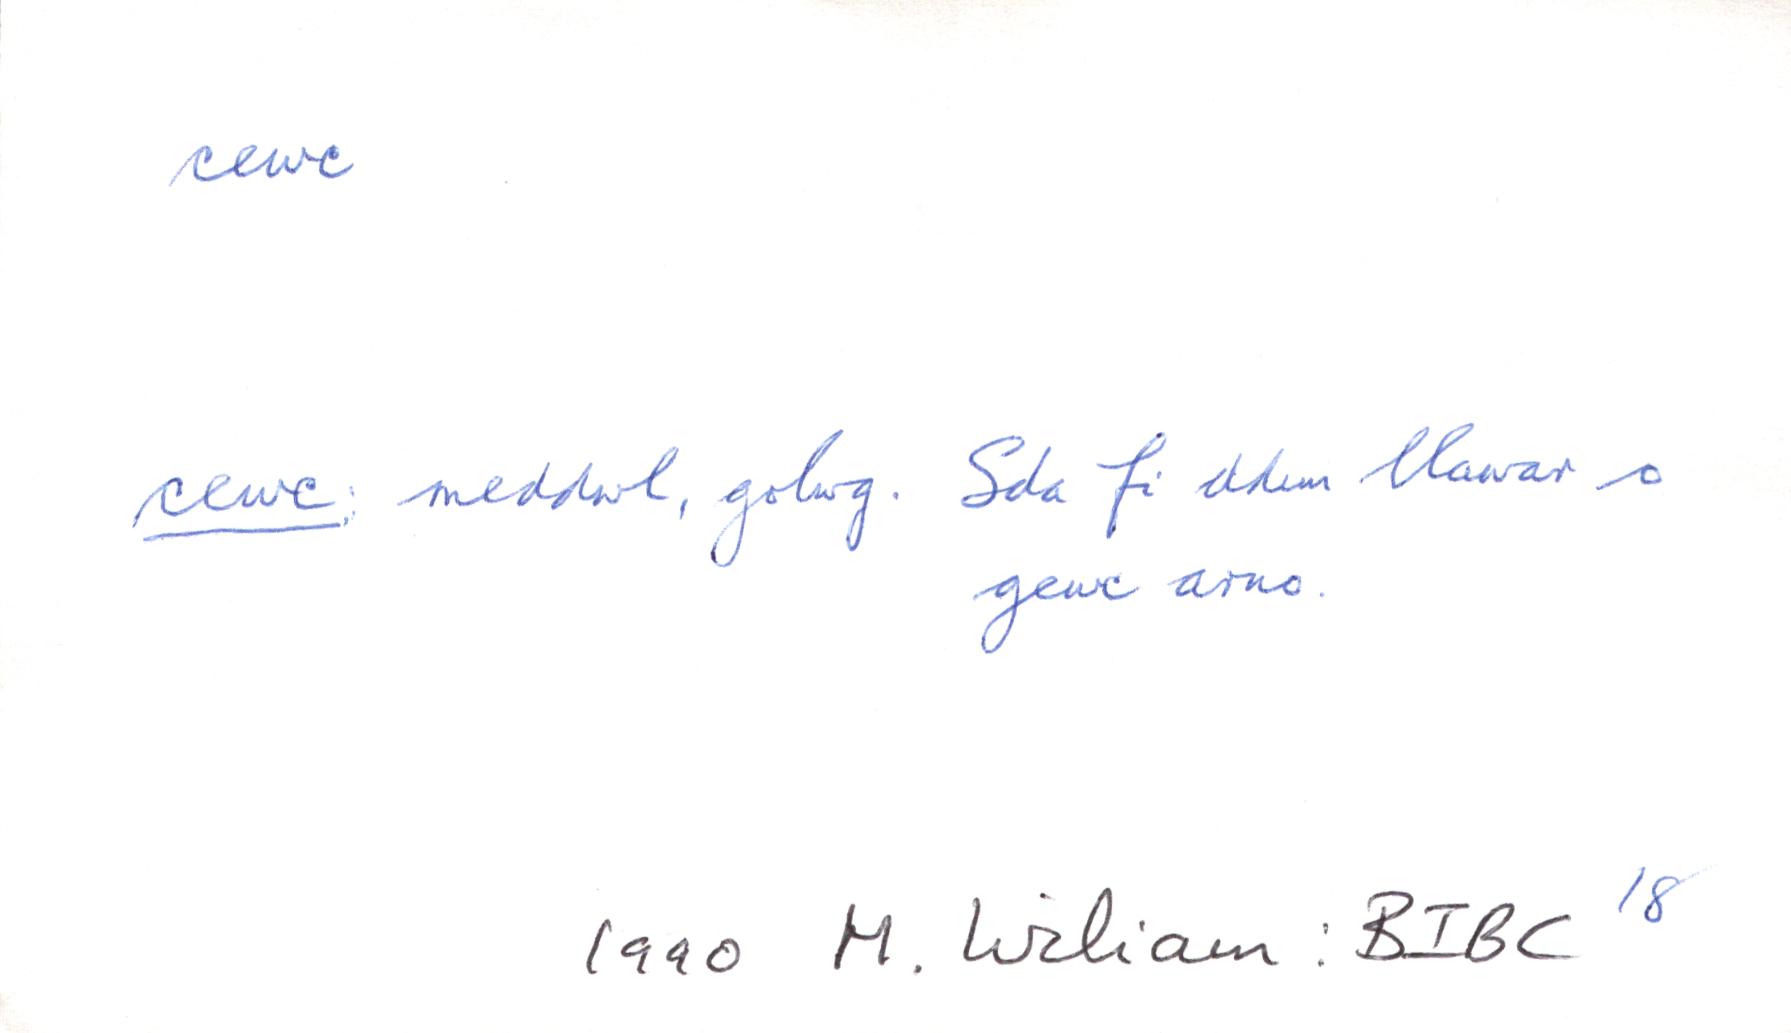 cewc
cewc; meddwl, golwg. Sda fi ddim llawar o
gewc arno.
1990 M. Wiliam: BIBC 18